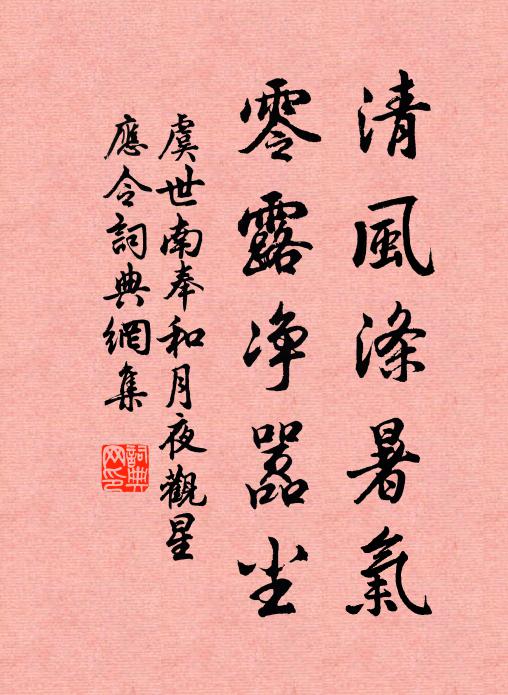 清風涤暑氣
零露净嚣尘
虞世南奉和月夜觀星
應令詞典網集
詞典网印